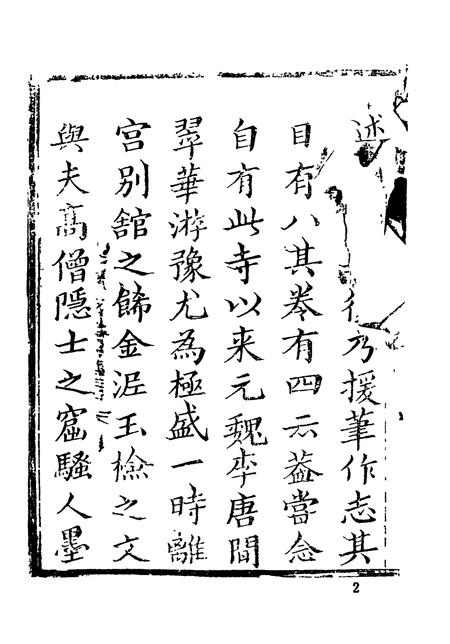 述乃援筆作志其
目有八其卷有四云葢嘗念
自有此寺以来元魏李唐間
翠華游豫尤為極盛一時離
宮别舘之餙金泥玉檢之文
與夫髙僧隱士之窟騷人墨
2